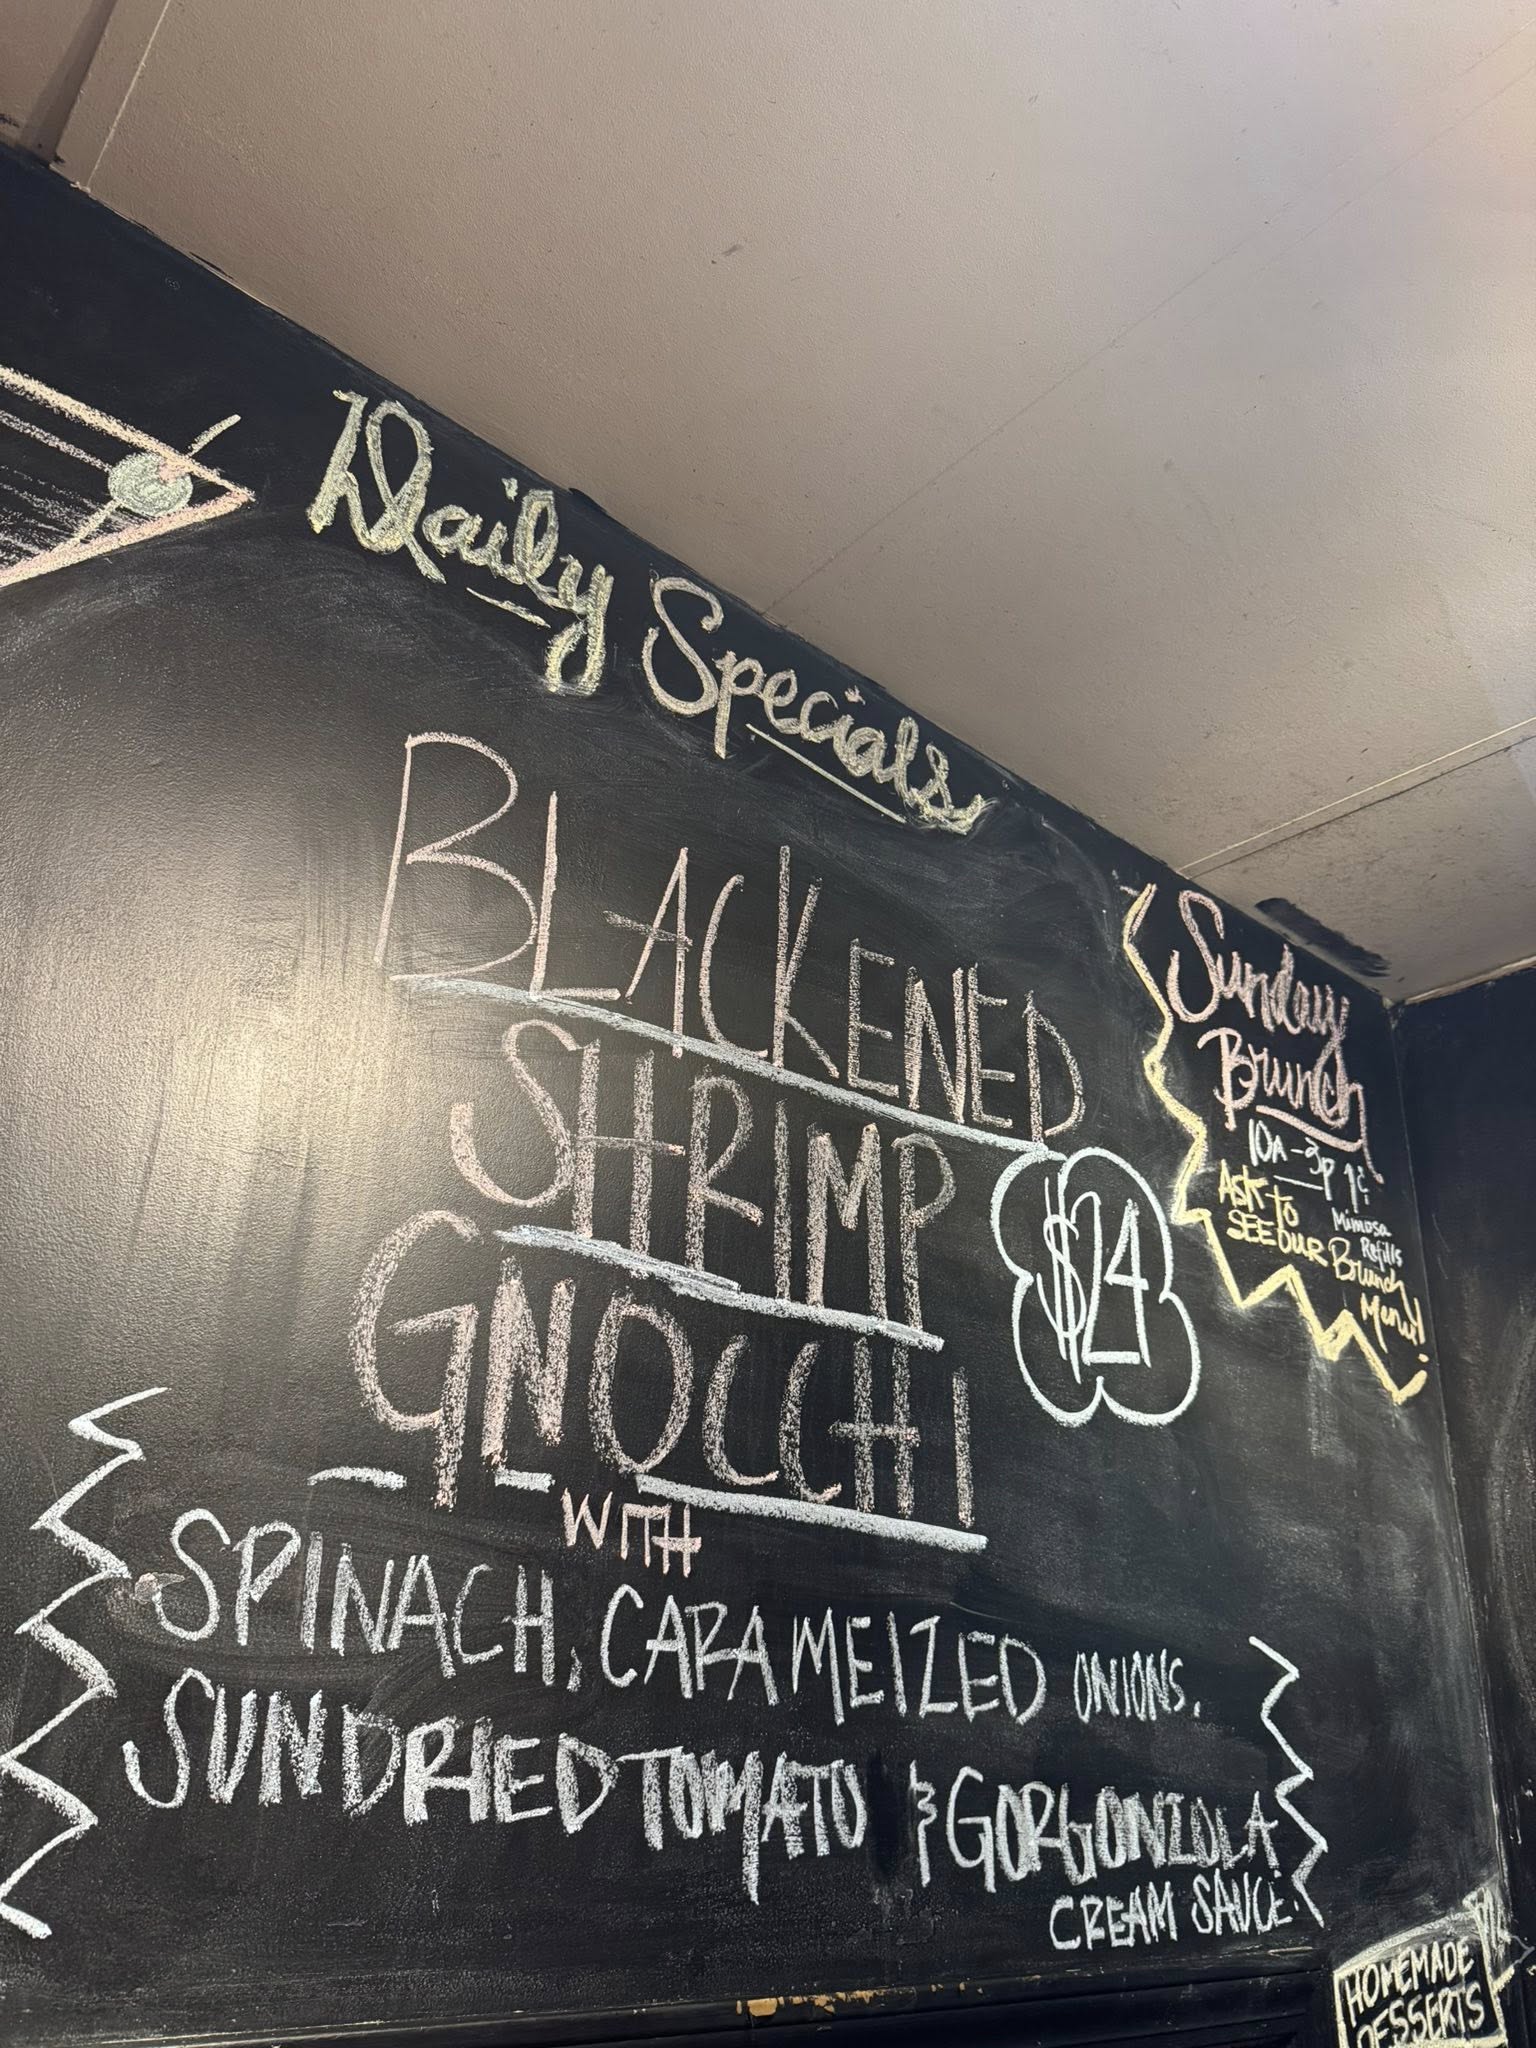 Daily Specials
BLACKENED
SHRIMP
GNOCCHI
$24
WITH
SPINACH, CARAMEIZED ONIONS,
SUNDRIED TOMATO & GORGONZOLA
CREAM SAUCE.
Sunday
Brunch
10A-3p 1¢
Mimosa
Refills
ASK to
SEE OUR Brunch
Menu!
HOMEMADE
DESSERTS